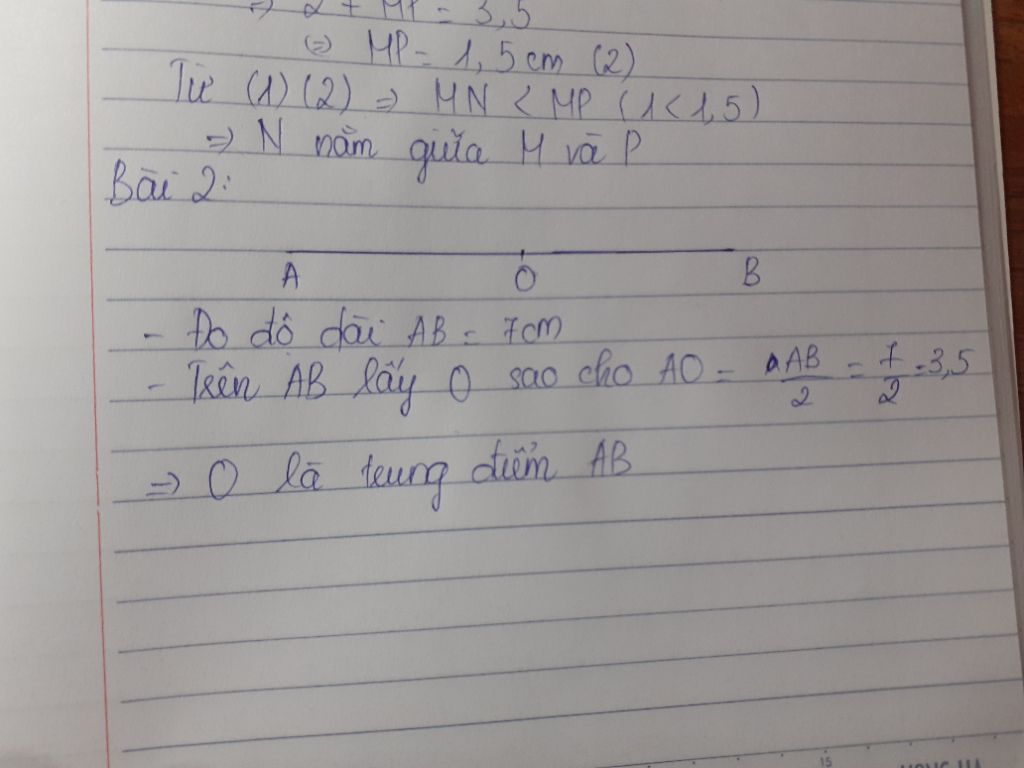 ⇒ 2 + MP = 3,5
⇔ MP = 1,5cm (2)
Từ (1) (2) ⇒ MN < MP (1 < 1,5)
⇒ N nằm giữa M và P
Bài 2:
A O B
- Đo độ dài AB = 7cm
- Trên AB lấy O sao cho AO = AB/2 = 7/2 = 3,5
⇒ O là trung điểm AB
15